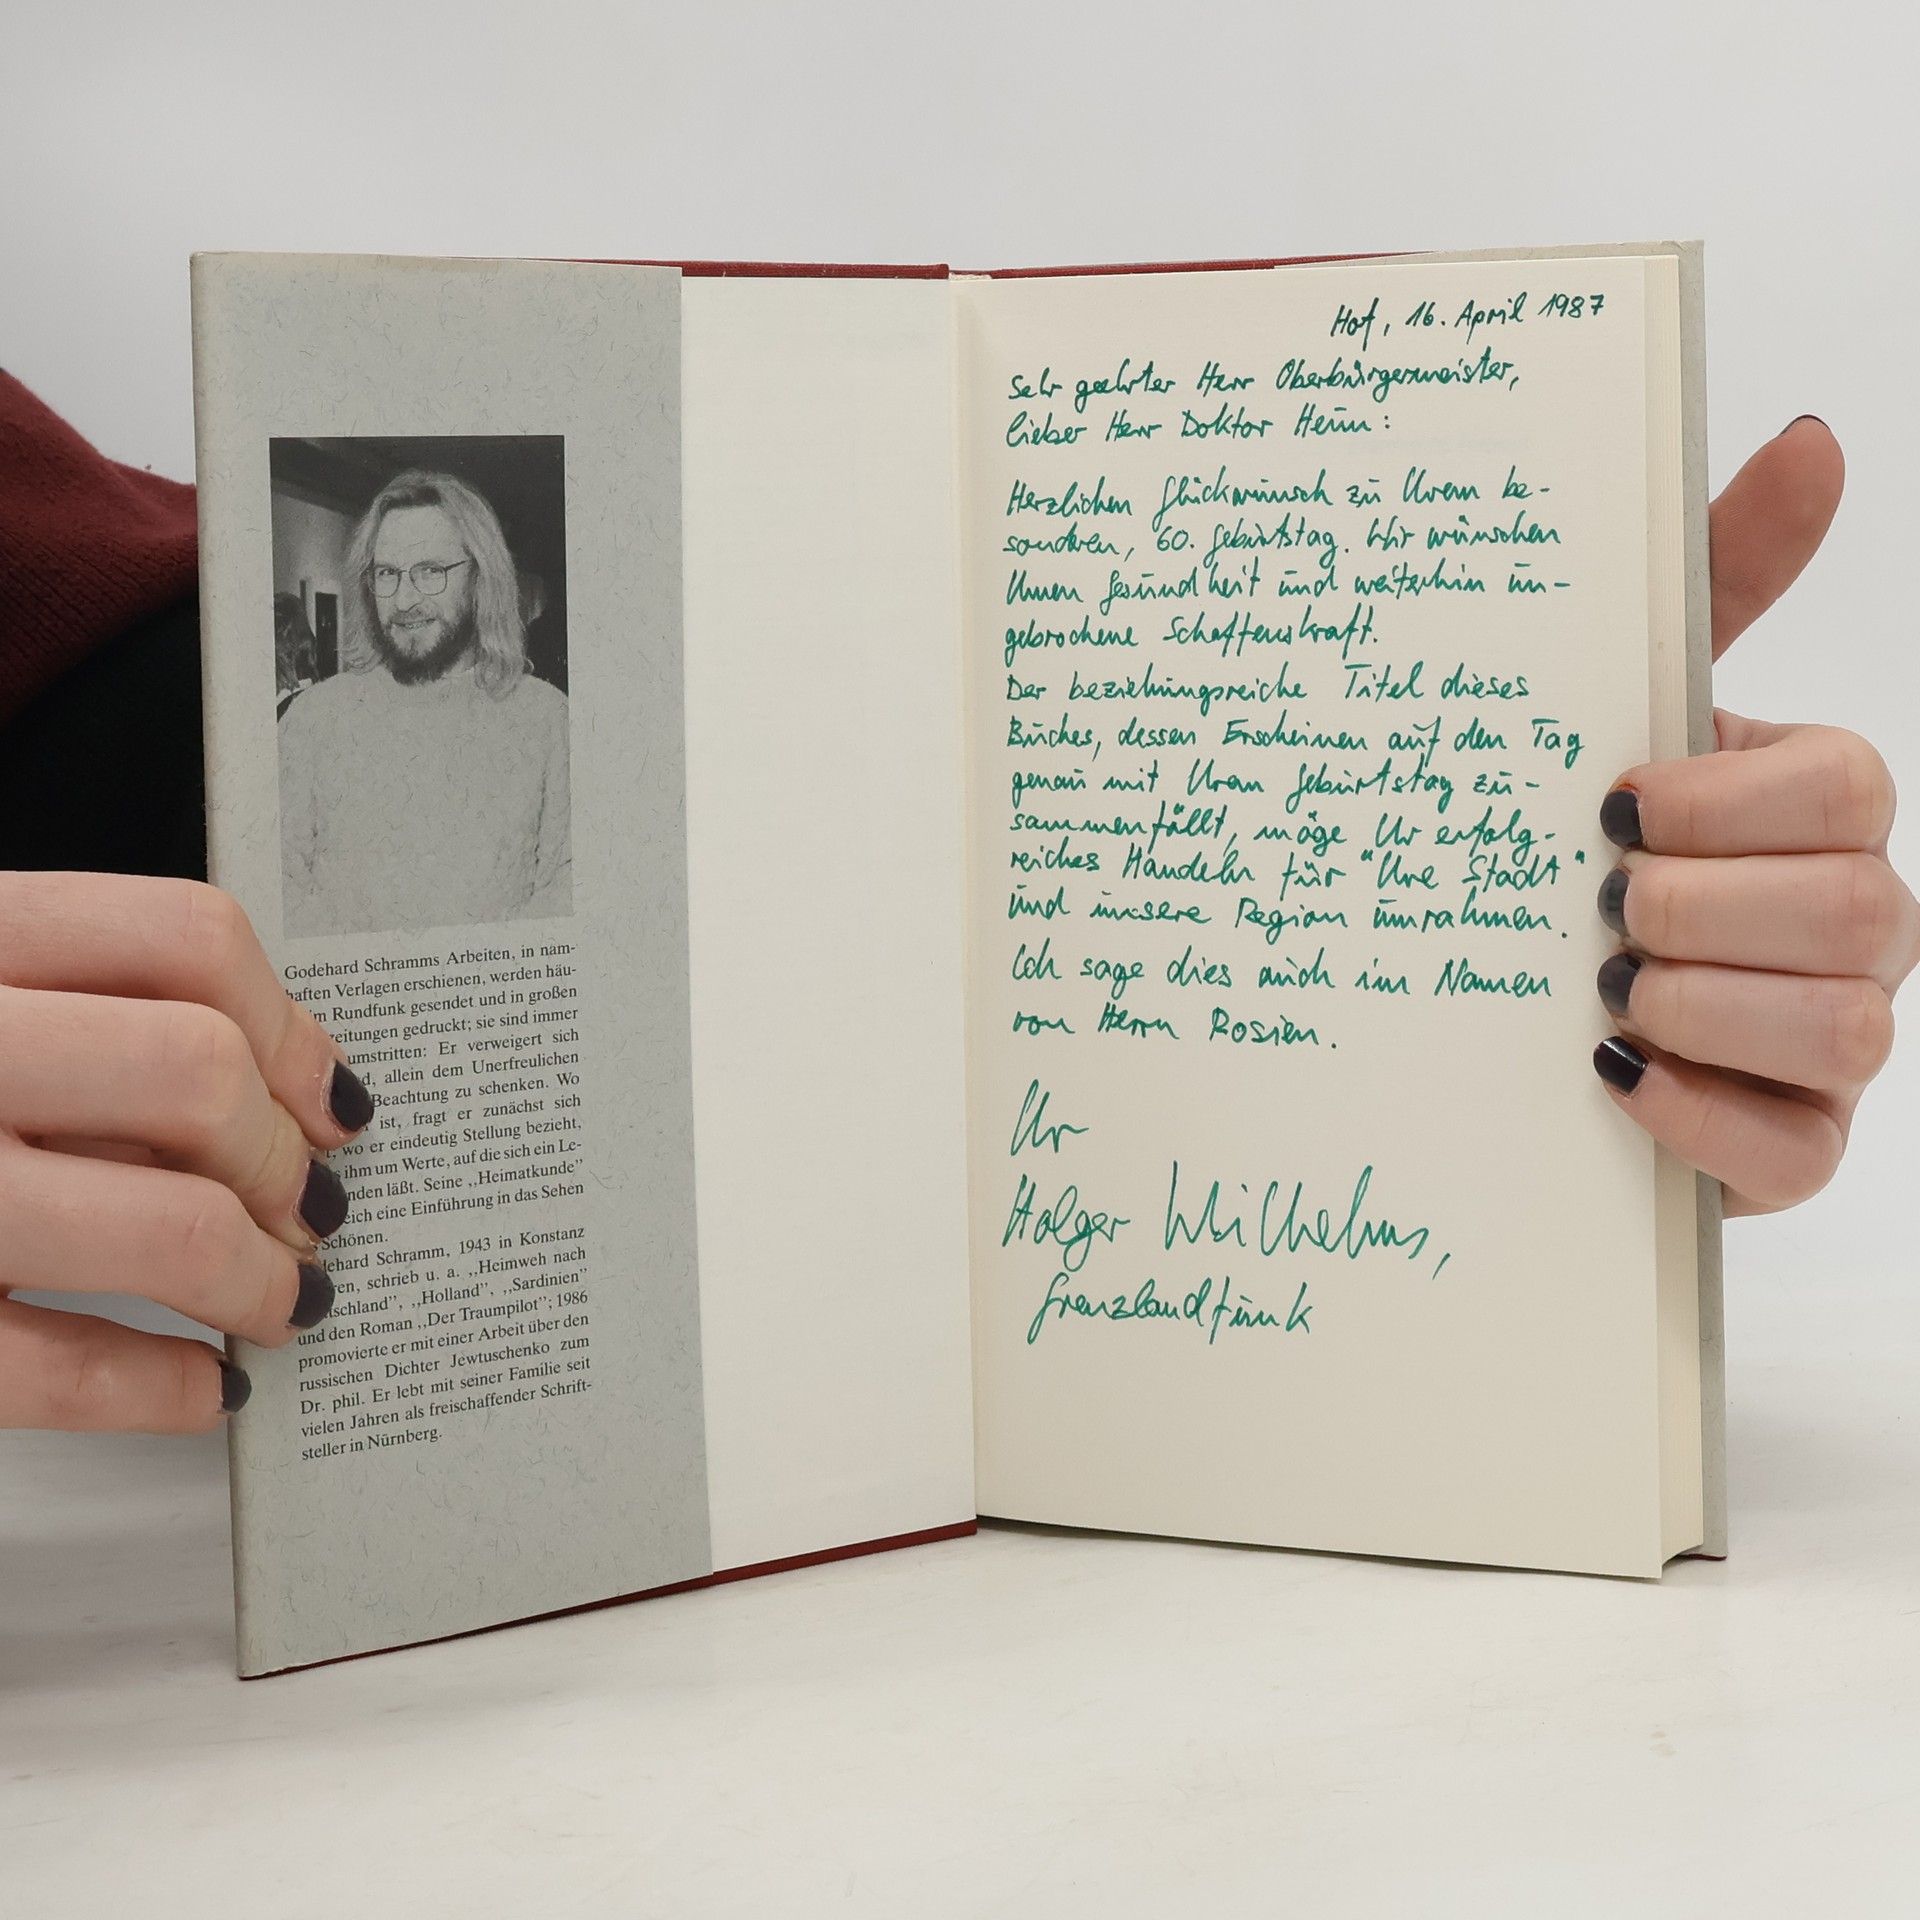 Godehard Schramms Arbeiten, in nam-
haften Verlagen erschienen, werden häu-
im Rundfunk gesendet und in großen
eitungen gedruckt; sie sind immer
umstritten: Er verweigert sich
d, allein dem Unerfreulichen
Beachtung zu schenken. Wo
ist, fragt er zunächst sich
t, wo er eindeutig Stellung bezieht,
s ihm um Werte, auf die sich ein Le-
nden läßt. Seine „Heimatkunde”
eich eine Einführung in das Sehen
s Schönen.
dehard Schramm, 1943 in Konstanz
ren, schrieb u. a. „Heimweh nach
tschland”, „Holland”, „Sardinien”
und den Roman „Der Traumpilot”; 1986
promovierte er mit einer Arbeit über den
russischen Dichter Jewtuschenko zum
Dr. phil. Er lebt mit seiner Familie seit
vielen Jahren als freischaffender Schrift-
steller in Nürnberg.
Hof, 16. April 1987
Sehr geehrter Herr Oberbürgermeister,
lieber Herr Doktor Heun:
Herzlichen Glückwunsch zu Ihrem be-
sonderen, 60. Geburtstag. Wir wünschen
Ihnen Gesundheit und weiterhin un-
gebrochene Schaffenskraft.
Der beziehungsreiche Titel dieses
Buches, dessen Erscheinen auf den Tag
genau mit Ihrem Geburtstag zu-
sammenfällt, möge Ihr erfolg-
reiches Handeln für "Ihre Stadt"
und unsere Region umrahmen.
Ich sage dies auch im Namen
von Herrn Rosien.
Ihr
Holger Wilhelms,
Grenzlandfunk